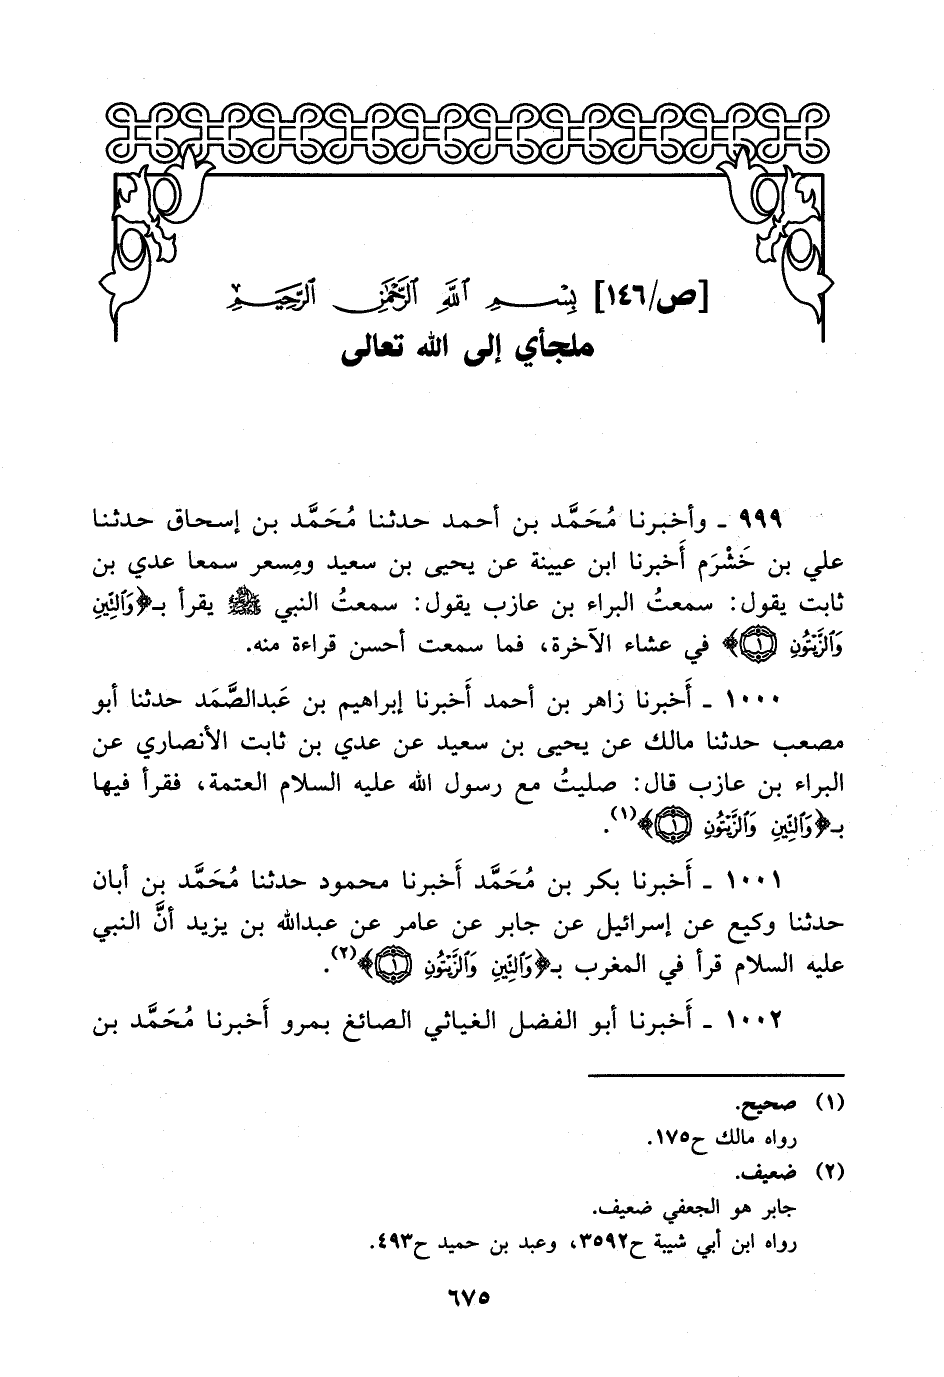 [ص/١٤٦] بِسْمِ ٱللَّهِ ٱلرَّحْمَٰنِ ٱلرَّحِيمِ
ملجأي إلى الله تعالى
٩٩٩ ـ وأخبرنا مُحَمَّد بن أحمد حدثنا مُحَمَّد بن إسحاق حدثنا
علي بن خَشْرَم أَخبرنا ابن عيينة عن يحيى بن سعيد ومِسعر سمعا عدي بن
ثابت يقول: سمعتُ البراء بن عازب يقول: سمعتُ النبي ﷺ يقرأ بـ﴿وَٱلتِّينِ
وَٱلزَّيْتُونِ ۝١﴾ في عشاء الآخرة، فما سمعت أحسن قراءة منه.
١٠٠٠ ـ أَخبرنا زاهر بن أحمد أَخبرنا إبراهيم بن عَبدالصَّمَد حدثنا أبو
مصعب حدثنا مالك عن يحيى بن سعيد عن عدي بن ثابت الأنصاري عن
البراء بن عازب قال: صليتُ مع رسول الله عليه السلام العتمة، فقرأ فيها
بـ﴿وَٱلتِّينِ وَٱلزَّيْتُونِ ۝١﴾(١).
١٠٠١ ـ أَخبرنا بكر بن مُحَمَّد أَخبرنا محمود حدثنا مُحَمَّد بن أبان
حدثنا وكيع عن إسرائيل عن جابر عن عامر عن عبدالله بن يزيد أنَّ النبي
عليه السلام قرأ في المغرب بـ﴿وَٱلتِّينِ وَٱلزَّيْتُونِ ۝١﴾(٢).
١٠٠٢ ـ أَخبرنا أبو الفضل الغياثي الصائغ بمرو أَخبرنا مُحَمَّد بن
(١) صحيح.
رواه مالك ح١٧٥.
(٢) ضعيف.
جابر هو الجعفي ضعيف.
رواه ابن أبي شيبة ح٣٥٩٢، وعبد بن حميد ح٤٩٣.
٦٧٥